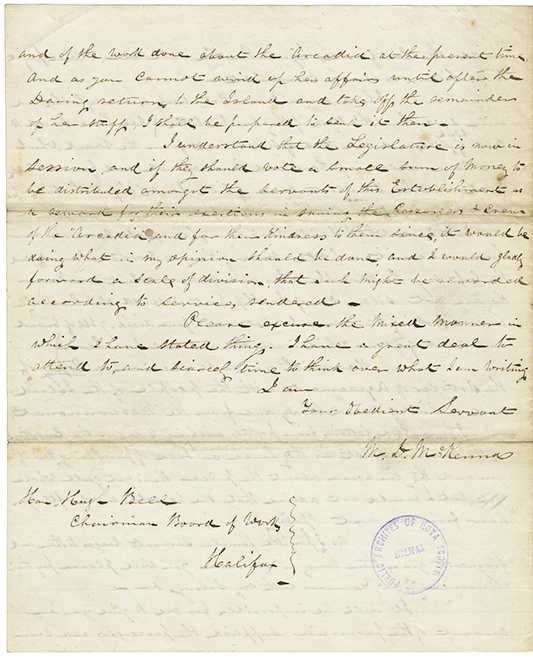 and of the work done about the "Arcadia" at the present time,
And as you cannot wind up her affairs until after the
Daring returns to the Island and take off the remainder
of her stuff, I shall be prepared to send it then –
I understand that the Legislature is now in
Session, and if they should vote a small sum of Money to
be distributed amongst the servants of this Establishment as
a reward for their exertions in saving the Passengers & Crew
of the "Arcadia" and for their kindness to them since, it would be
doing what in my opinion should be done, and I would gladly
forward a scale of division, that each might be rewarded
according to services rendered –
Please excuse the mixed manner in
which I have stated things. I have a great deal to
attend to, and scarcely time to think over what I am writing
I am
Your Obedient Servant
M. D. McKenna
Hon. Hugh Bell
Chairman Board of Works
Halifax
PUBLIC ARCHIVES OF NOVA SCOTIA
HALIFAX